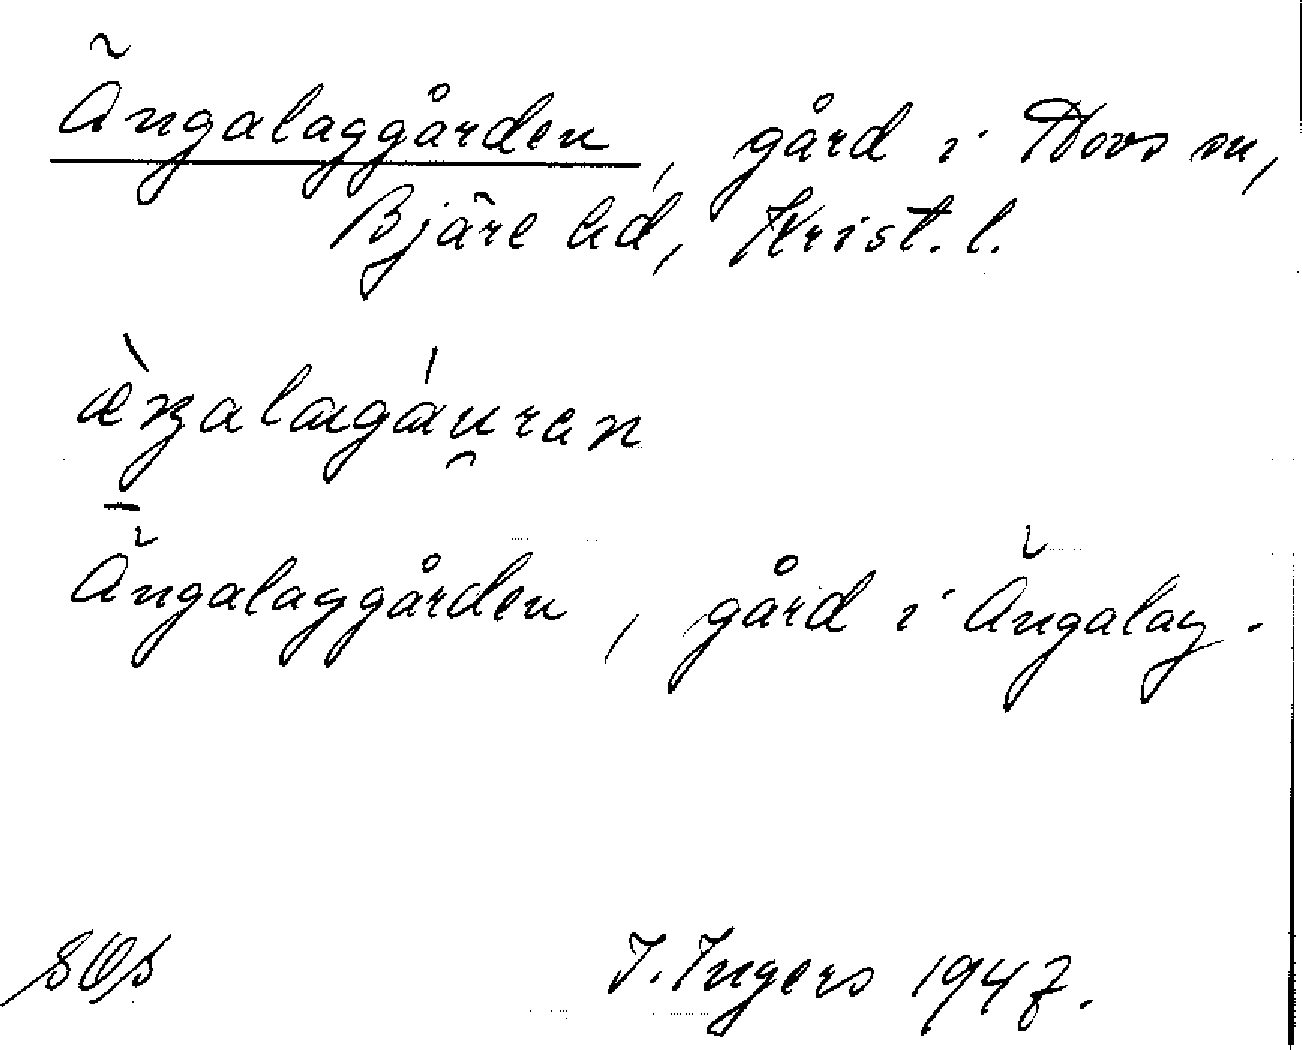 Ängalaggården, gård i Hovs sn,
Bjäre hd, Krist. l.
æ̀ŋalagáu̯ran
Ängalaggården, gård i Ängalag.
I. Ingers 1947.